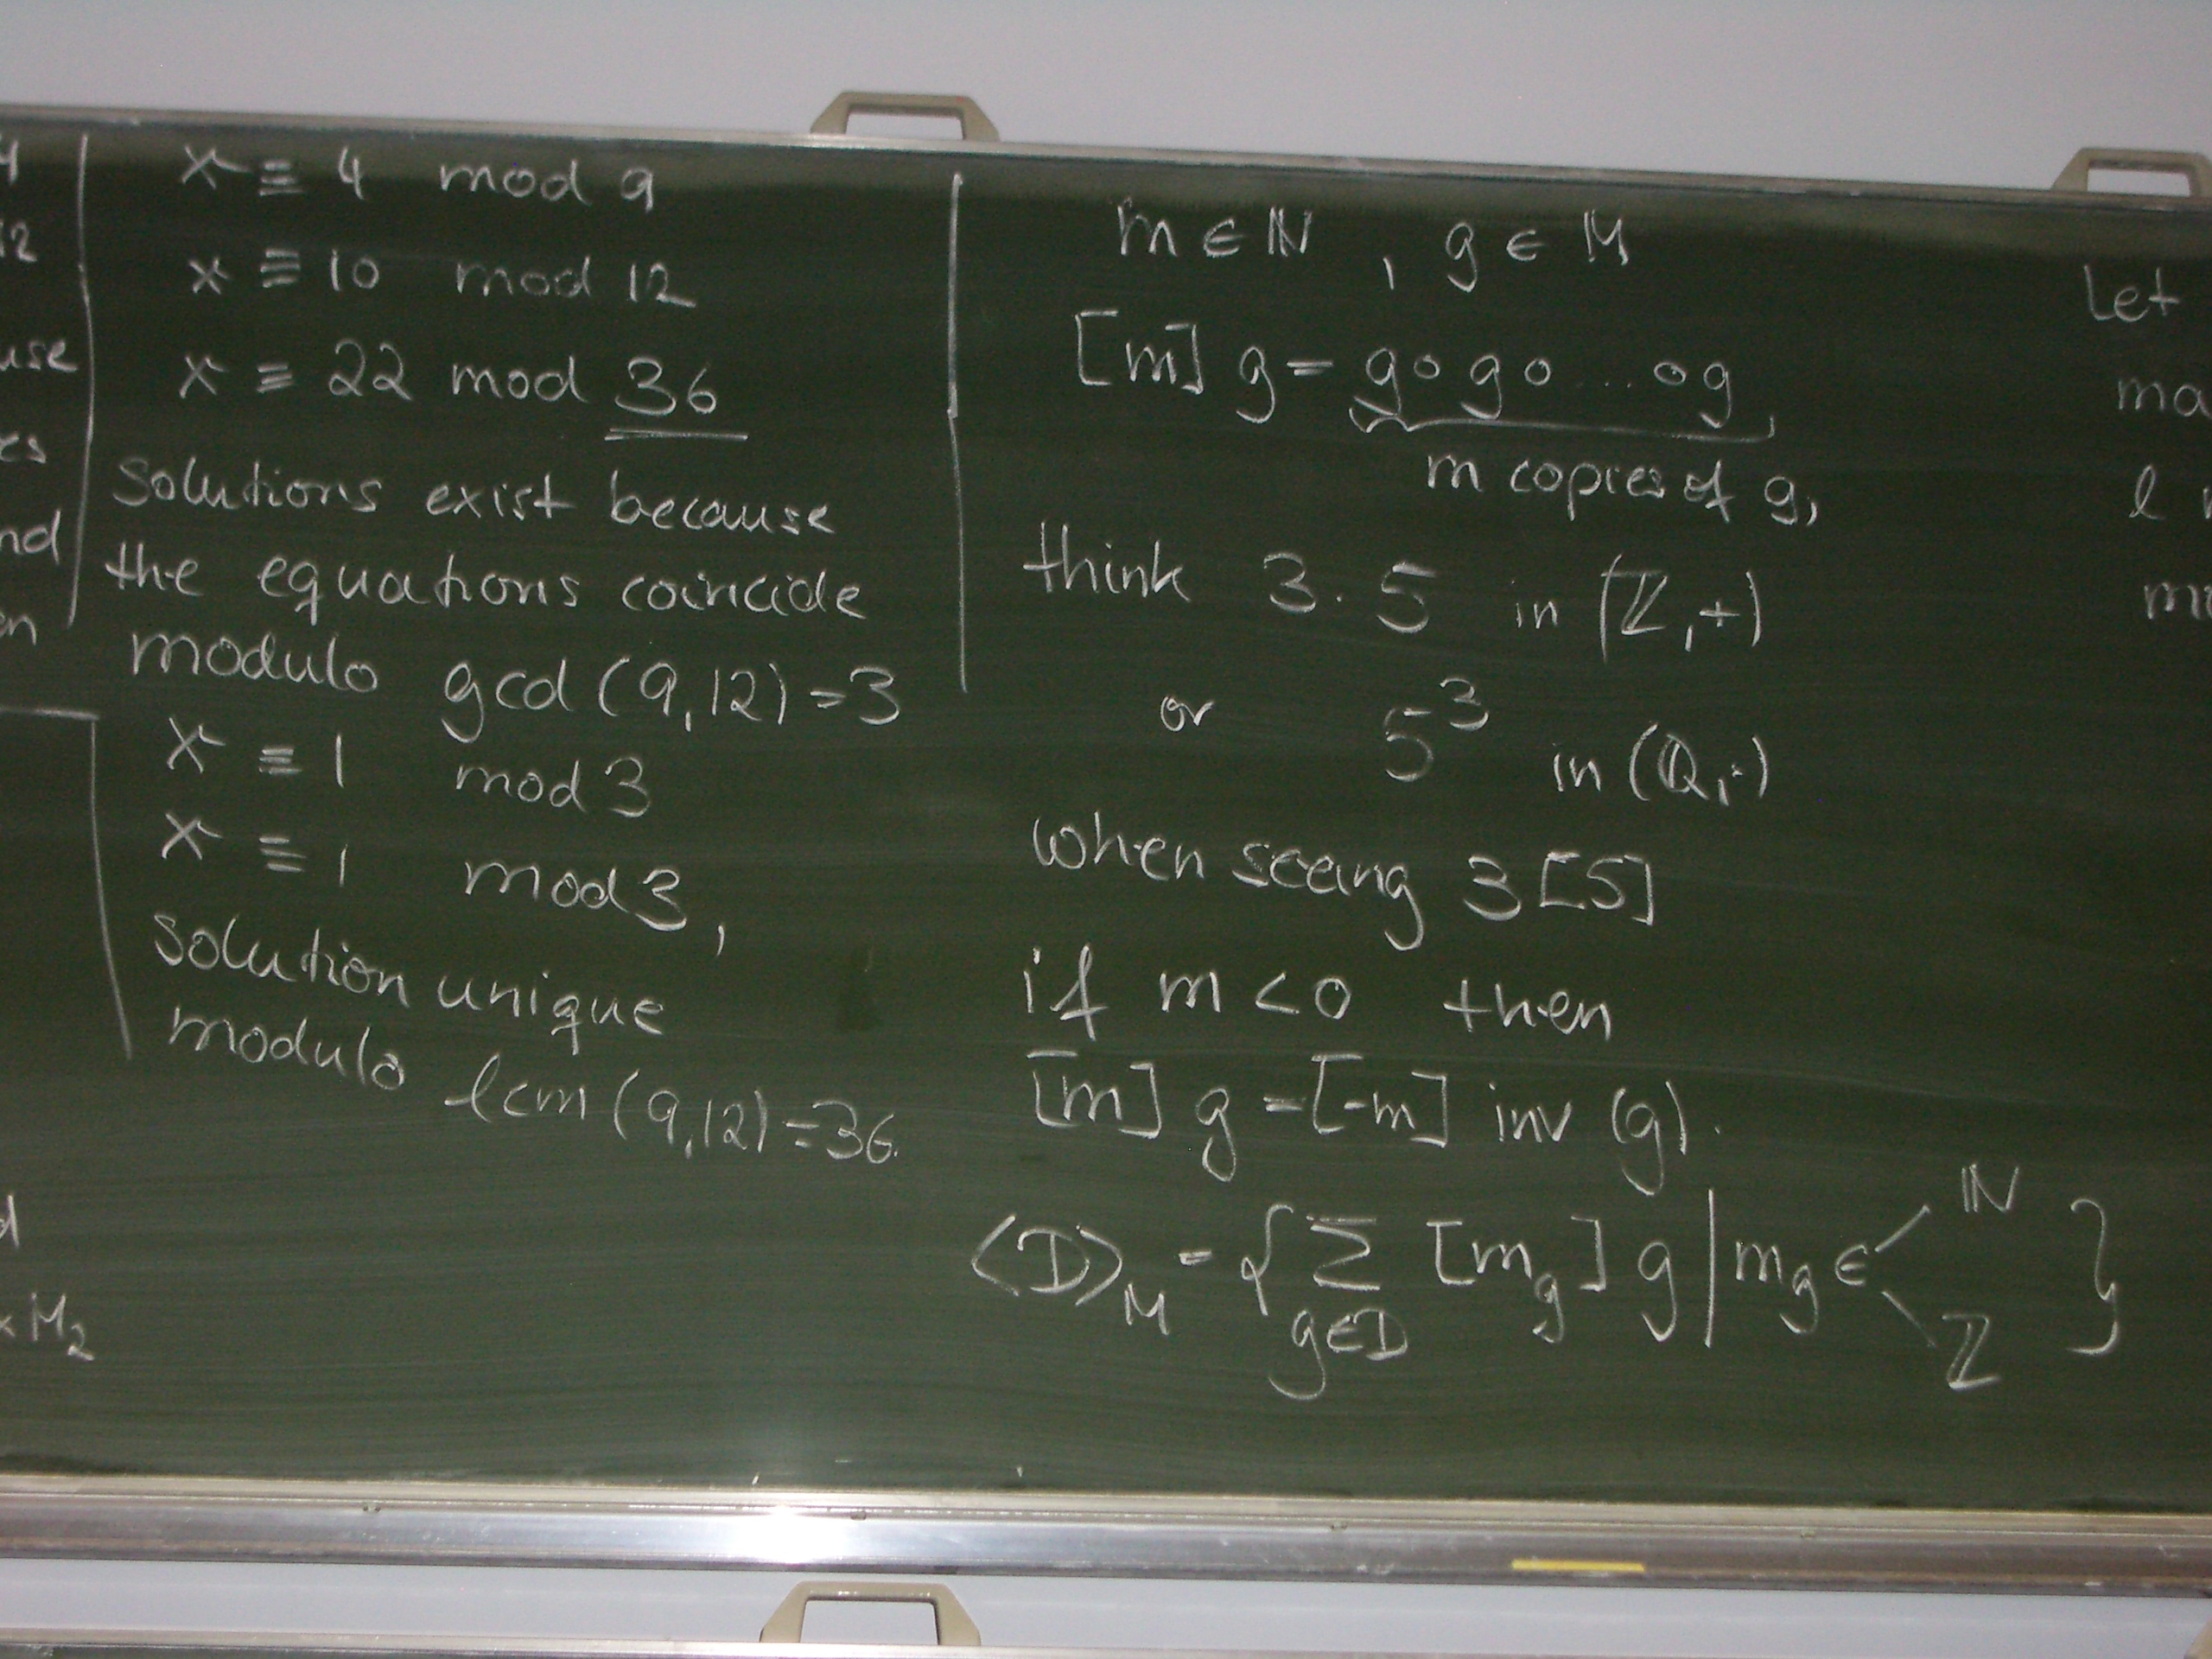 4
12
use
es
nd
on
d
x M₂
x ≡ 4 mod 9
x ≡ 10 mod 12
x ≡ 22 mod 36
Solutions exist because
the equations coincide
modulo gcd(9,12)=3
x ≡ 1 mod 3
x ≡ 1 mod 3,
solution unique
modulo lcm(9,12)=36.
m ∈ ℕ, g ∈ M
[m] g = g∘g∘...∘g
m copies of g,
think 3·5 in (ℤ,+)
or 5³ in (ℚ,·)
when seeing 3[5]
if m<0 then
[m] g = [-m] inv (g).
⟨D⟩_M = { Σ_{g∈D} [m_g] g | m_g ∈ < ℕ ℤ }
Let
ma
l